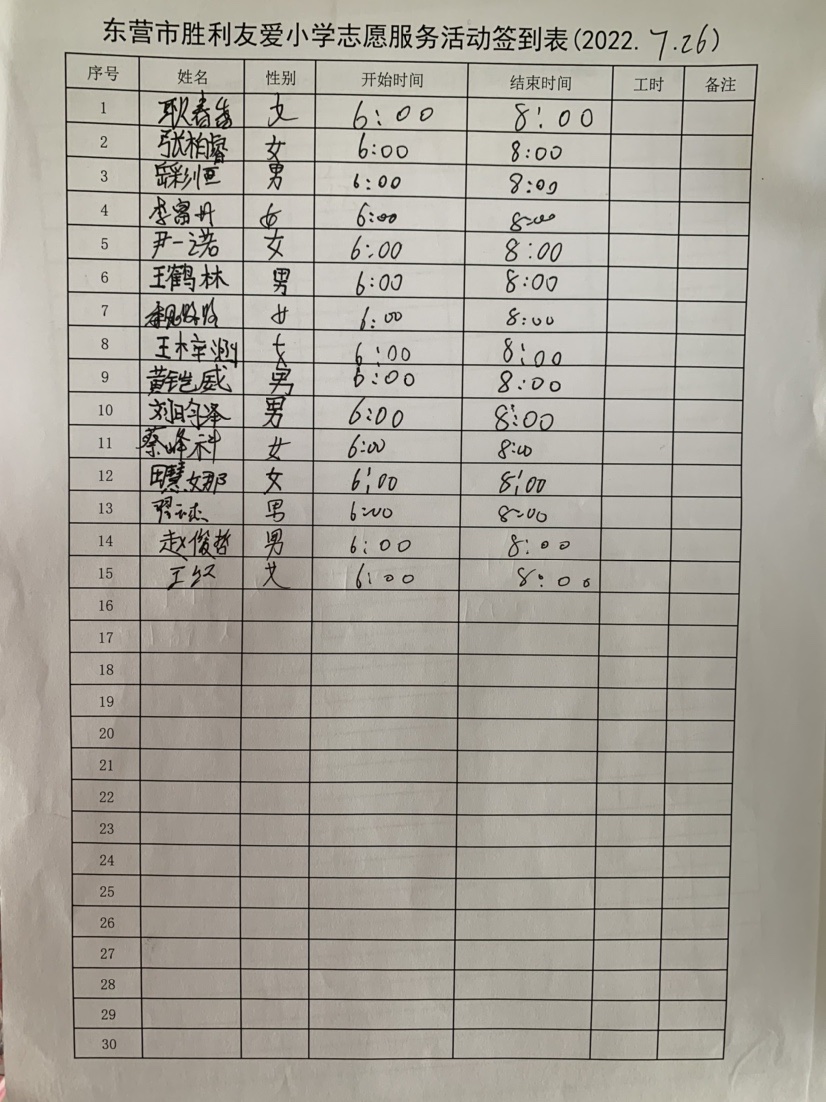 东营市胜利友爱小学志愿服务活动签到表(2022. 7.26)
序号 姓名 性别 开始时间 结束时间 工时 备注
1 耿春 女 6:00 8:00
2 张柏睿 女 6:00 8:00
3 男 6:00 8:00
4 李富丹 女 6:00 8:00
5 尹一诺 女 6:00 8:00
6 王鹤林 男 6:00 8:00
7 女 6:00 8:00
8 王梓 女 6:00 8:00
9 黄铠威 男 6:00 8:00
10 刘昀泽 男 6:00 8:00
11 蔡峰科 女 6:00 8:00
12 田慧娜 女 6:00 8:00
13 男 6:00 8:00
14 赵俊哲 男 6:00 8:00
15 王红 女 6:00 8:00
16
17
18
19
20
21
22
23
24
25
26
27
28
29
30